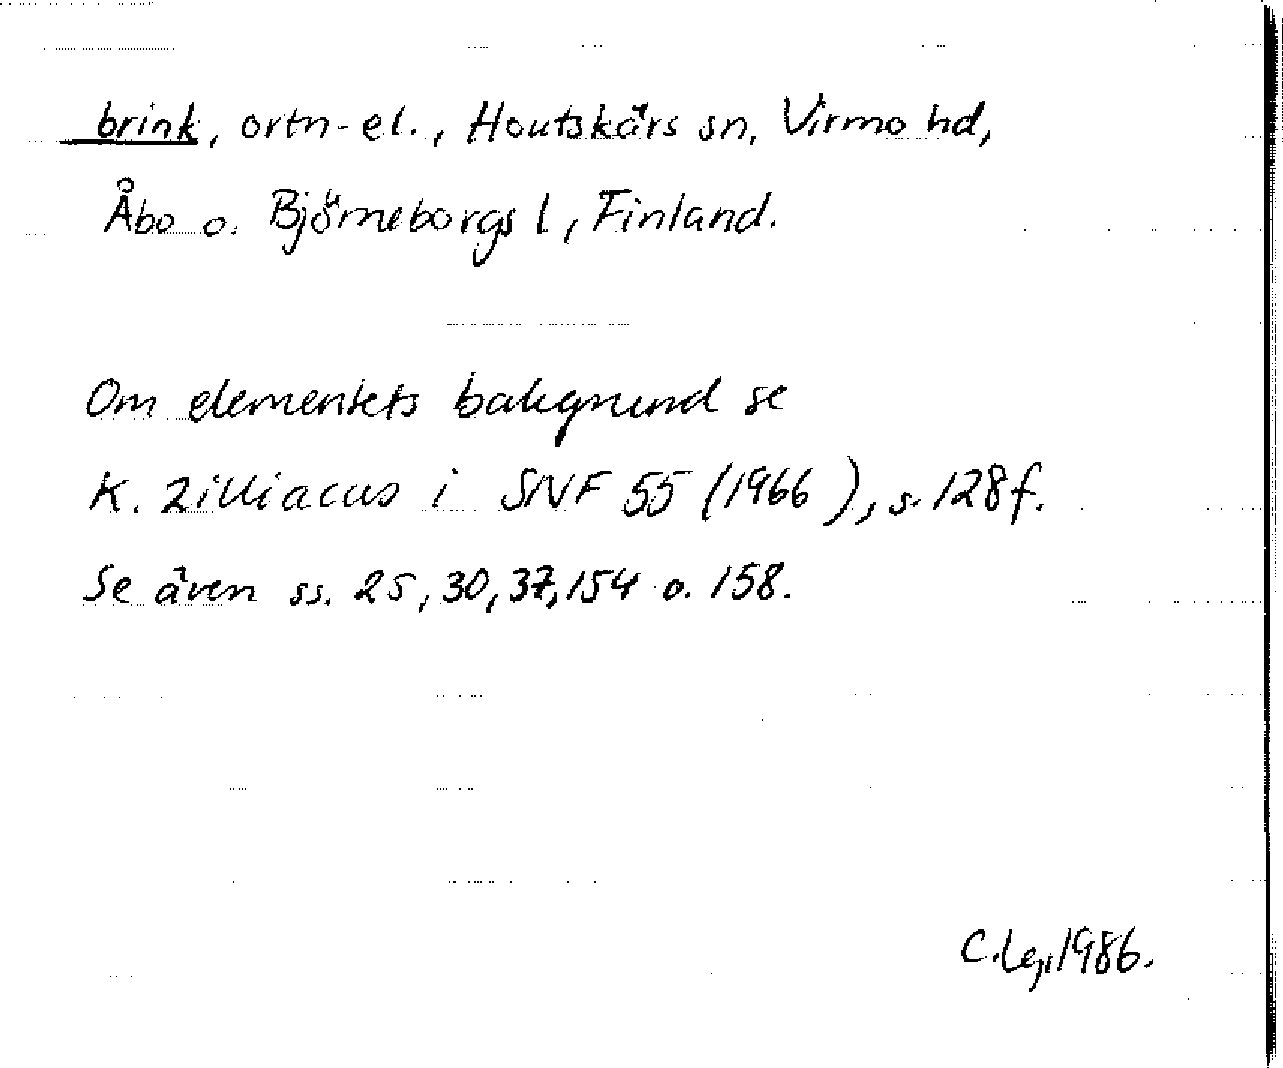 brink, ortn-el., Houtskärs sn, Virmo hd,
Åbo o. Björneborgs l, Finland.
Om elementets bakgrund se
K. Zilliacus i SNF 55 (1966), s. 128f.
Se även ss. 25, 30, 37, 154 o. 158.
C. 1986.